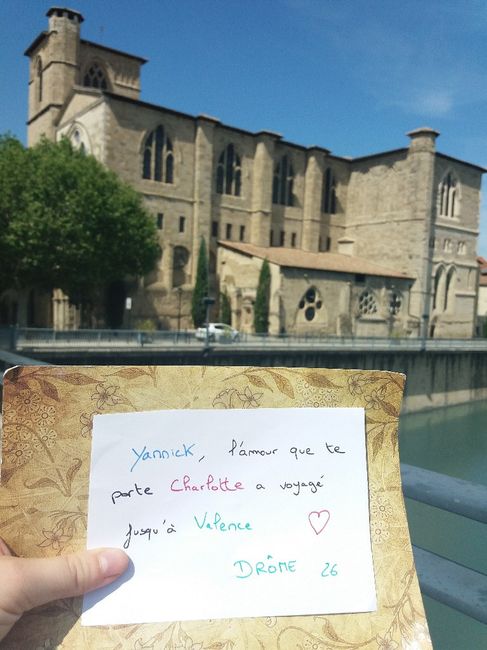 Yannick, l'amour que te
porte Charlotte a voyagé
jusqu'à Valence
DRÔME 26